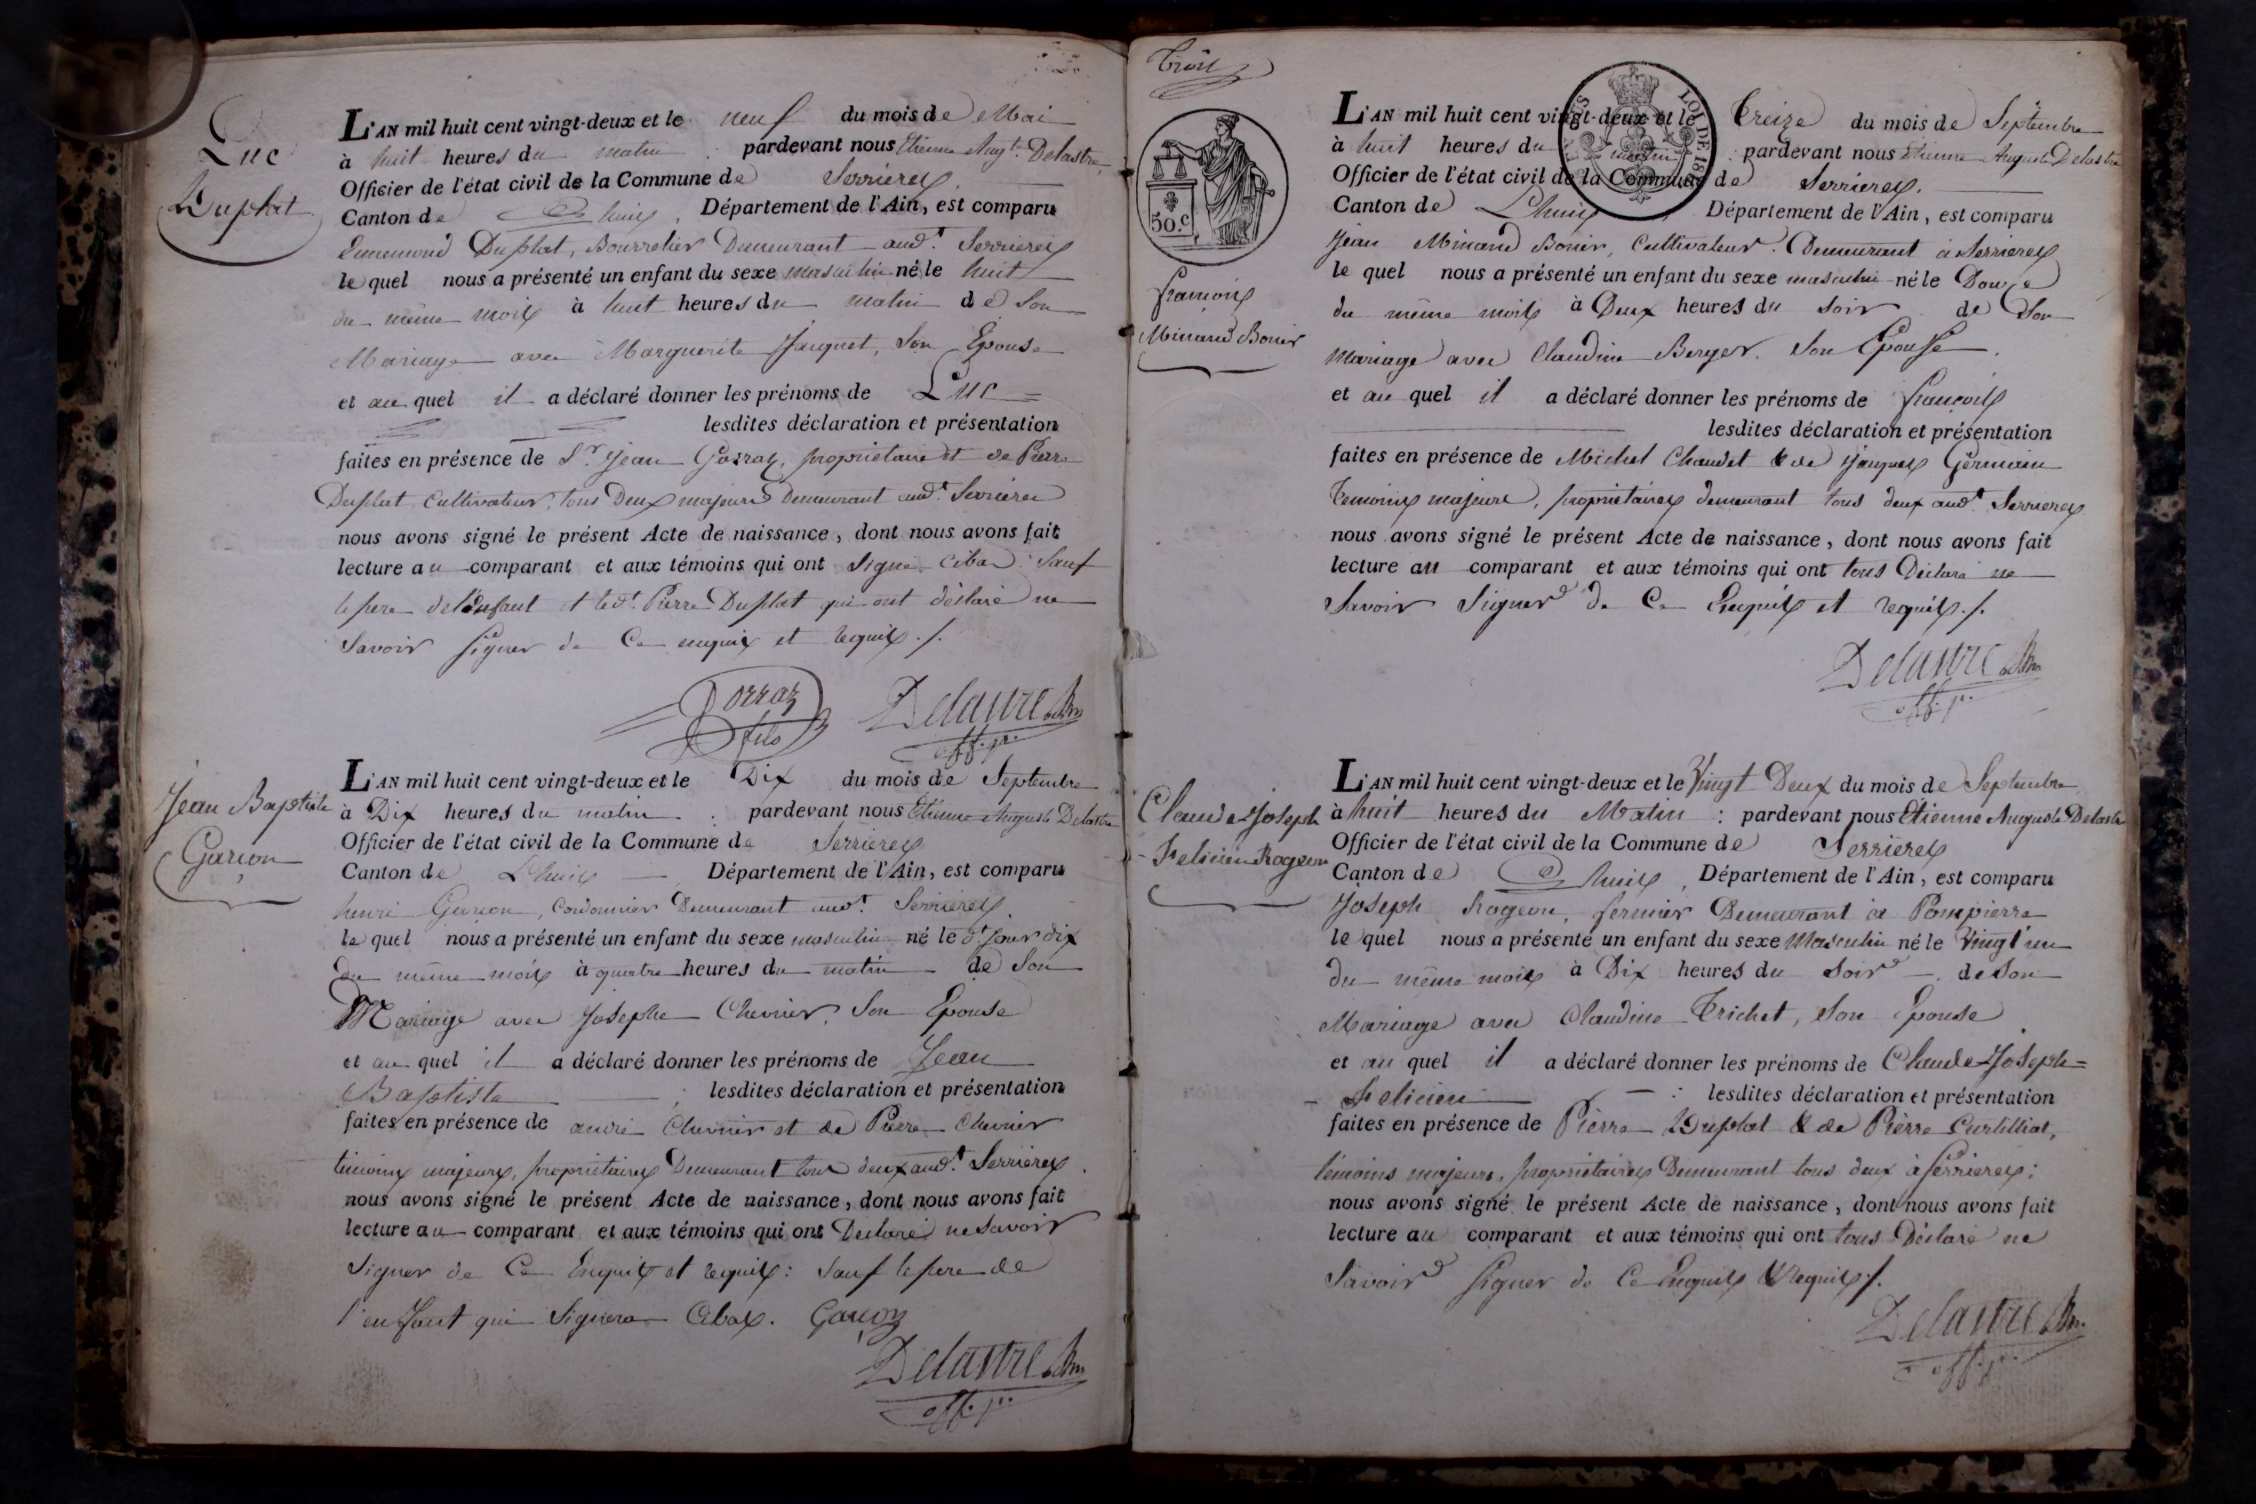 Luc
Duplat
L'AN mil huit cent vingt-deux et le neuf du mois de Mai
à huit heures du matin : pardevant nous Etienne Augte. Delastre
Officier de l'état civil de la Commune de Serrieres.
Canton de Lhuis, Département de l'Ain, est comparu
Duplat, Bourrelier Demeurant aud.t Serrieres
le quel nous a présenté un enfant du sexe masculin né le huit
du même mois à huit heures du matin de Son
Mariage avec Marguerite Jauquet, Son Epouse
et au quel il a déclaré donner les prénoms de Luc
lesdites déclaration et présentation
faites en présence de Sr. Jean Gorraz, propriétaire et de Pierre
Duplat Cultivateur, tous Deux majeurs Demeurant aud.t Serrieres
nous avons signé le présent Acte de naissance, dont nous avons fait
lecture au comparant et aux témoins qui ont Signé cibas Sauf
le pere de l'enfant et led.t Pierre Duplat qui ont déclaré ne
Savoir Signer de Ce enquis et requis ./.
fils Delastre adm
off. p.
Jean Baptiste
Garçon
L'AN mil huit cent vingt-deux et le Dix du mois de Septembre
à Dix heures du matin : pardevant nous Etienne Auguste Delastre
Officier de l'état civil de la Commune de Serrieres
Canton de Lhuis Département de l'Ain, est comparu
henri Garçon, Cordonnier Demeurant aud.t Serrieres.
le quel nous a présenté un enfant du sexe masculin né le d.t Jour dix
du même mois à quatre heures du matin de Son
Mariage avec Josephe Chevrier, Son Epouse
et au quel il a déclaré donner les prénoms de Jean
Baptiste ; lesdites déclaration et présentation
faites en présence de andré Chevrier et de Pierre Chevrier
témoins majeurs, propriétaires Demeurant tous deux aud.t Serrieres.
nous avons signé le présent Acte de naissance, dont nous avons fait
lecture au comparant et aux témoins qui ont Déclaré ne Savoir
Signer de Ce Enquis et requis : Sauf le pere de
l'enfant qui Signera Cibas. Garçon
Delastre adm
off. p.
Trois
50.c
françois
Minand Bonier
L'AN mil huit cent vingt-deux et le Treize du mois de Septembre
à huit heures du matin : pardevant nous Etienne Auguste Delastre
Officier de l'état civil de la Commune de Serrieres.
Canton de Lhuis Département de l'Ain, est comparu
Jean Minand Bonier, Cultivateur. Demeurant à Serrieres
le quel nous a présenté un enfant du sexe masculin né le Douze
du même mois à Deux heures du Soir de Son
Mariage avec Claudine Berger. Son Epouse.
et au quel il a déclaré donner les prénoms de françois
lesdites déclaration et présentation
faites en présence de Michel Chaudet & de Jacques Germain
Temoins majeurs, propriétaires demeurant tous deux aud.t Serrieres
nous avons signé le présent Acte de naissance, dont nous avons fait
lecture au comparant et aux témoins qui ont tous Déclaré ne
Savoir Signer de Ce Enquis et requis ./.
Delastre adm
off. p.
Claude Joseph
Felicien Rogeon
L'AN mil huit cent vingt-deux et le Vingt Deux du mois de Septembre
à huit heures du Matin : pardevant nous Etienne Auguste Delastre
Officier de l'état civil de la Commune de Serrieres
Canton de Lhuis, Département de l'Ain, est comparu
Joseph Rogeon, fermier Demeurant à Pompierre
le quel nous a présenté un enfant du sexe Masculin né le Vingt un
du même mois à Dix heures du Soir de Son
Mariage avec Claudine Trichet, Son Epouse
et au quel il a déclaré donner les prénoms de Claude Joseph =
Felicien : lesdites déclaration et présentation
faites en présence de Pierre Duplat & de Pierre Curtilliat,
témoins majeurs, propriétaires Demeurant tous deux à Serrieres ;
nous avons signé le présent Acte de naissance, dont nous avons fait
lecture au comparant et aux témoins qui ont tous Déclaré ne
Savoir Signer de Ce Enquis & Requis ./.
Delastre adm.
off. p.